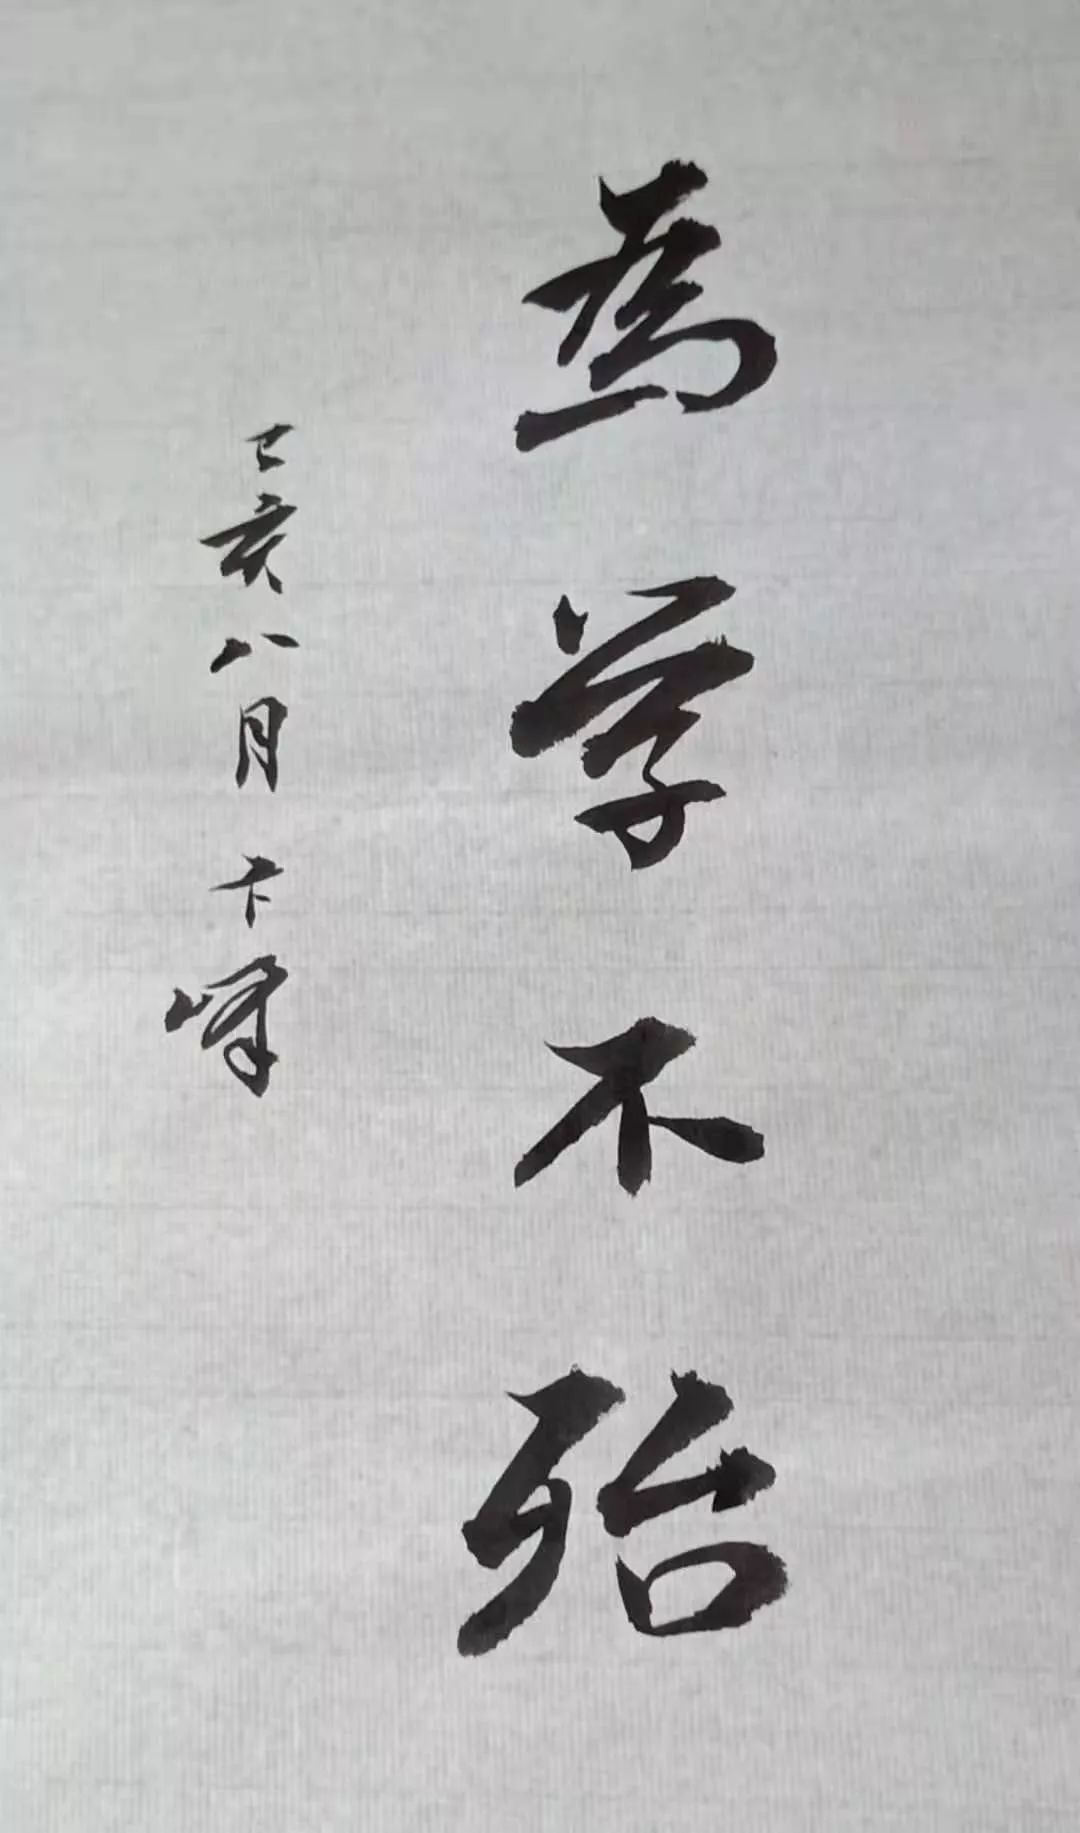 為学不殆
己亥八月 卞峰